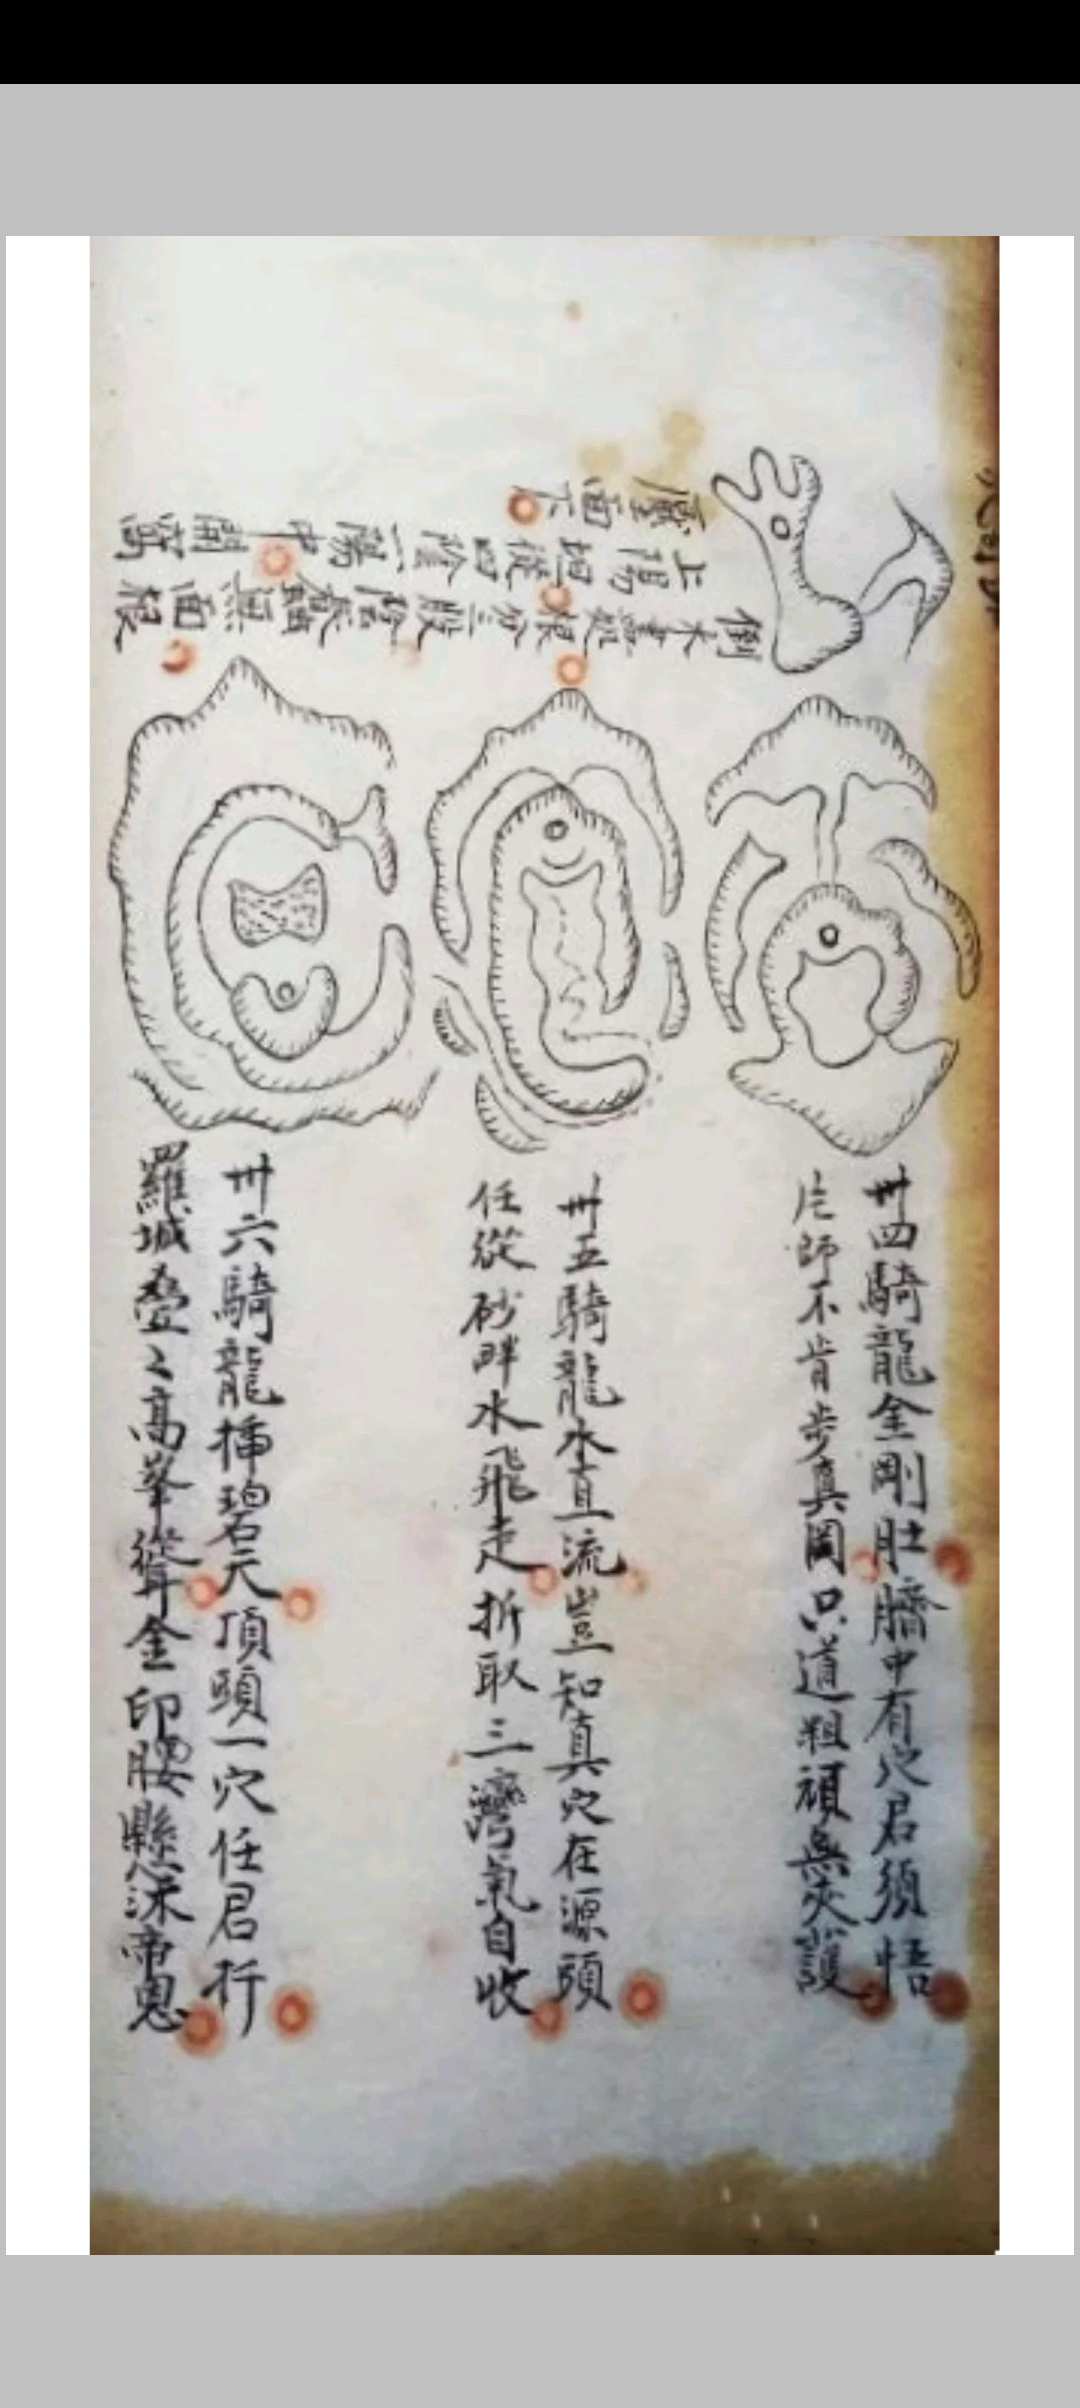 卅四騎龍金剛肚臍中有穴君須悟
庀師不肯步真岡只道粗頑無夾護
卅五騎龍水直流豈知真穴在源頭
任從砂畔水飛走折取三灣氣自收
卅六騎龍揷碧天頂頭一穴任君扦
羅城叠〻高峯聳金印腰懸沐帝恩
倒木畫殺根分三股陰
面根
上陽坦從四陰一陽中開窩
壓面下